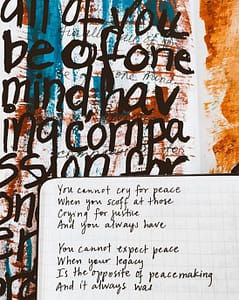 all of you
be of one
mind, hav
ing compa
ssion for
one
You cannot cry for peace
When you scoff at those
Crying for justice
And you always have
You cannot expect peace
When your legacy
Is the opposite of peacemaking
And it always was